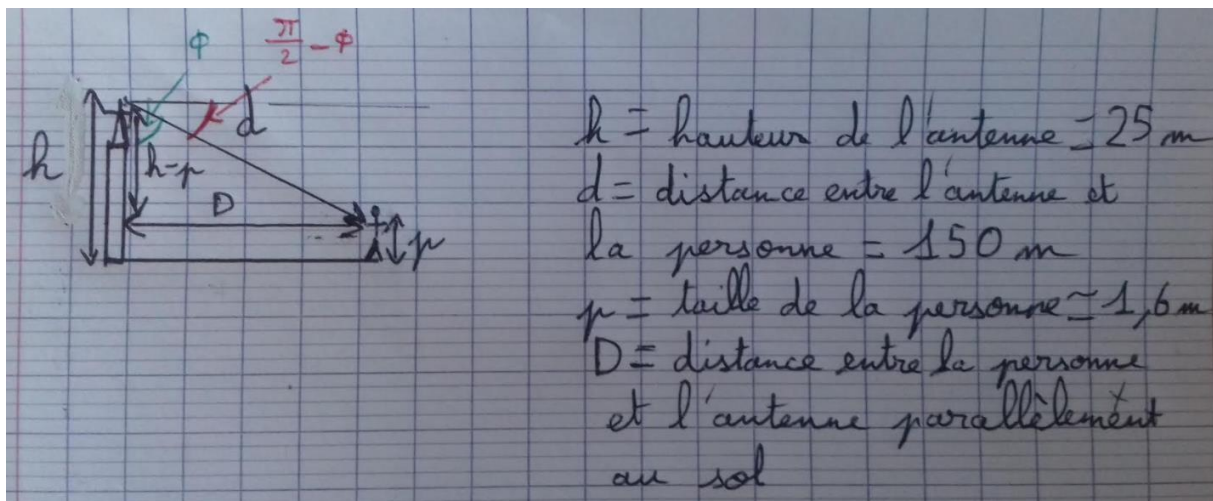 φ
π/2 - φ
d
h
h-p
D
p
h = hauteur de l'antenne ≃ 25 m
d = distance entre l'antenne et
la personne = 150 m
p = taille de la personne ≃ 1,6 m
D = distance entre la personne
et l'antenne parallèlement
au sol